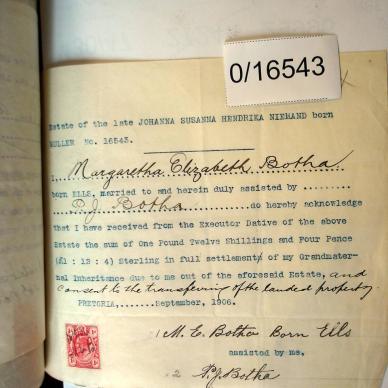 0/16543
Estate of the late JOHANNA SUSANNA HENDRIKA NIEMAND born
MULLER No. 16543.
I, Margaretha Elizabeth Botha
born ELLS, married to and herein duly assisted by .........
P.J Botha ............do hereby acknowledge
that I have received from the Executor Dative of the above
Estate the sum of One Pound Twelve Shillings and Four Pence
(£1 : 12 : 4) Sterling in full settlement of my Grandmater-
nal Inheritance due to me out of the aforesaid Estate, and
consent to the transfering of the landed property
PRETORIA,.......September, 1906.
1 M. E. Botha Born Ells
assisted by me.
2 P.J. Botha